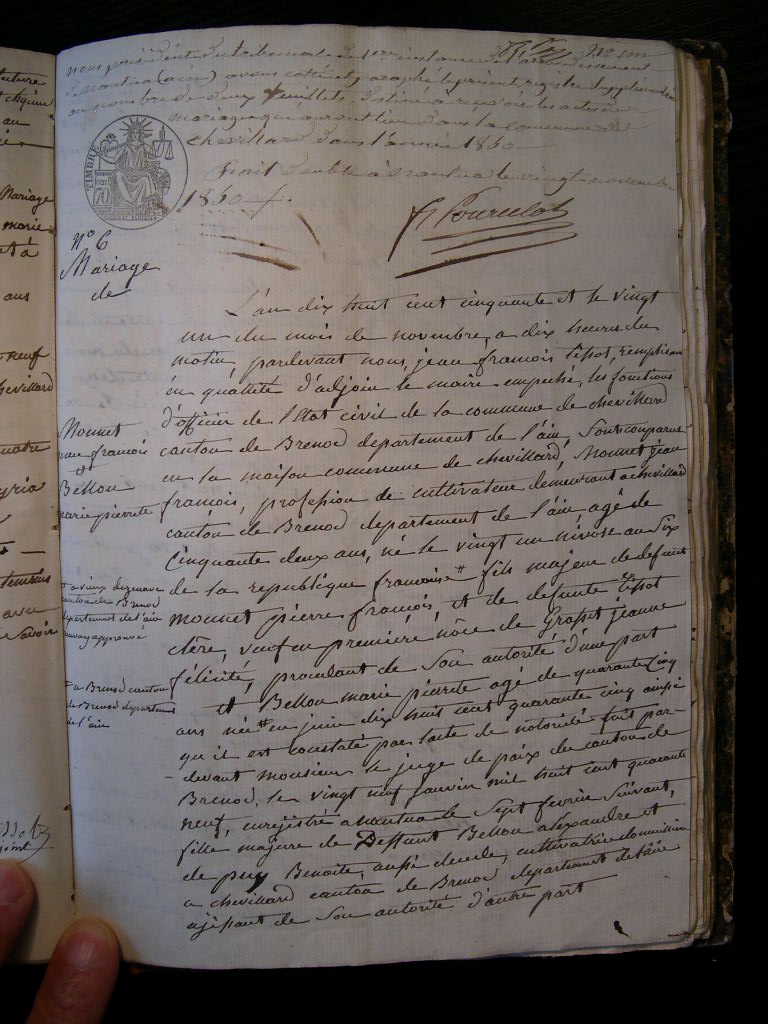 nous président du tribunal de 1ère instance de l'arrondissement
de Nantua (ain) avons cotté et paraphé le présent registre supplémentaire
au nombre de deux feuillets, destiné à recevoir les actes de
mariage qui auront lieu dans la commune de
chevillard dans l'année 1850
fait double à nantua le vingt novembre
1850
TIMBRE
70
Pourcelot
N° 6
Mariage
de
Monnet
jean francois
et
Bellon
marie pierrete
L'an dix huit cent cinquante et le vingt
un du mois de novembre, a dix heures du
matin, pardevant nous, jean francois tissot, remplissant
en qualité d'adjoin le maire empeché, les fonctions
d'officier de l'Etat civil de la commune de chevillard
canton de Brenod departement de l'ain, Sont comparus
en la maison commune de chevillard, Monnet jean
francois, profession de cultivateur demeurant a chevillard
canton de Brenod departement de l'ain agé de
Cinquante deux ans, né le vingt un nivose an Six
de la republique francoise # fils majeur de defunt
monnet pierre francois, et de defunte tissot
clère, veuf en première nôce de Grosset jeanne
félicité, procedant de Son autorité d'une part
et Bellon marie pierrete agé de quarante cinq
ans née # en juin dix huit cent quarante cinq ainsi
qu'il est constaté par l'acte de notoriété fait par-
devant monsieur le juge de paix du canton de
Brenod, le vingt neuf janvier mil huit cent quarante
neuf, enregistré a nantua le Sept fevrier Suivant,
fille majure de Deffunt Bellon alexandre et
de puy Benoite, aussi decede, cultivatrice domiciliée
a chevillard canton de Brenod departement de l'ain
agissant de Son autorité d'autre part
canton de Brenod
departement de l'ain
renvoy approuvé
# a Brenod canton
de Brenod departement
de l'ain